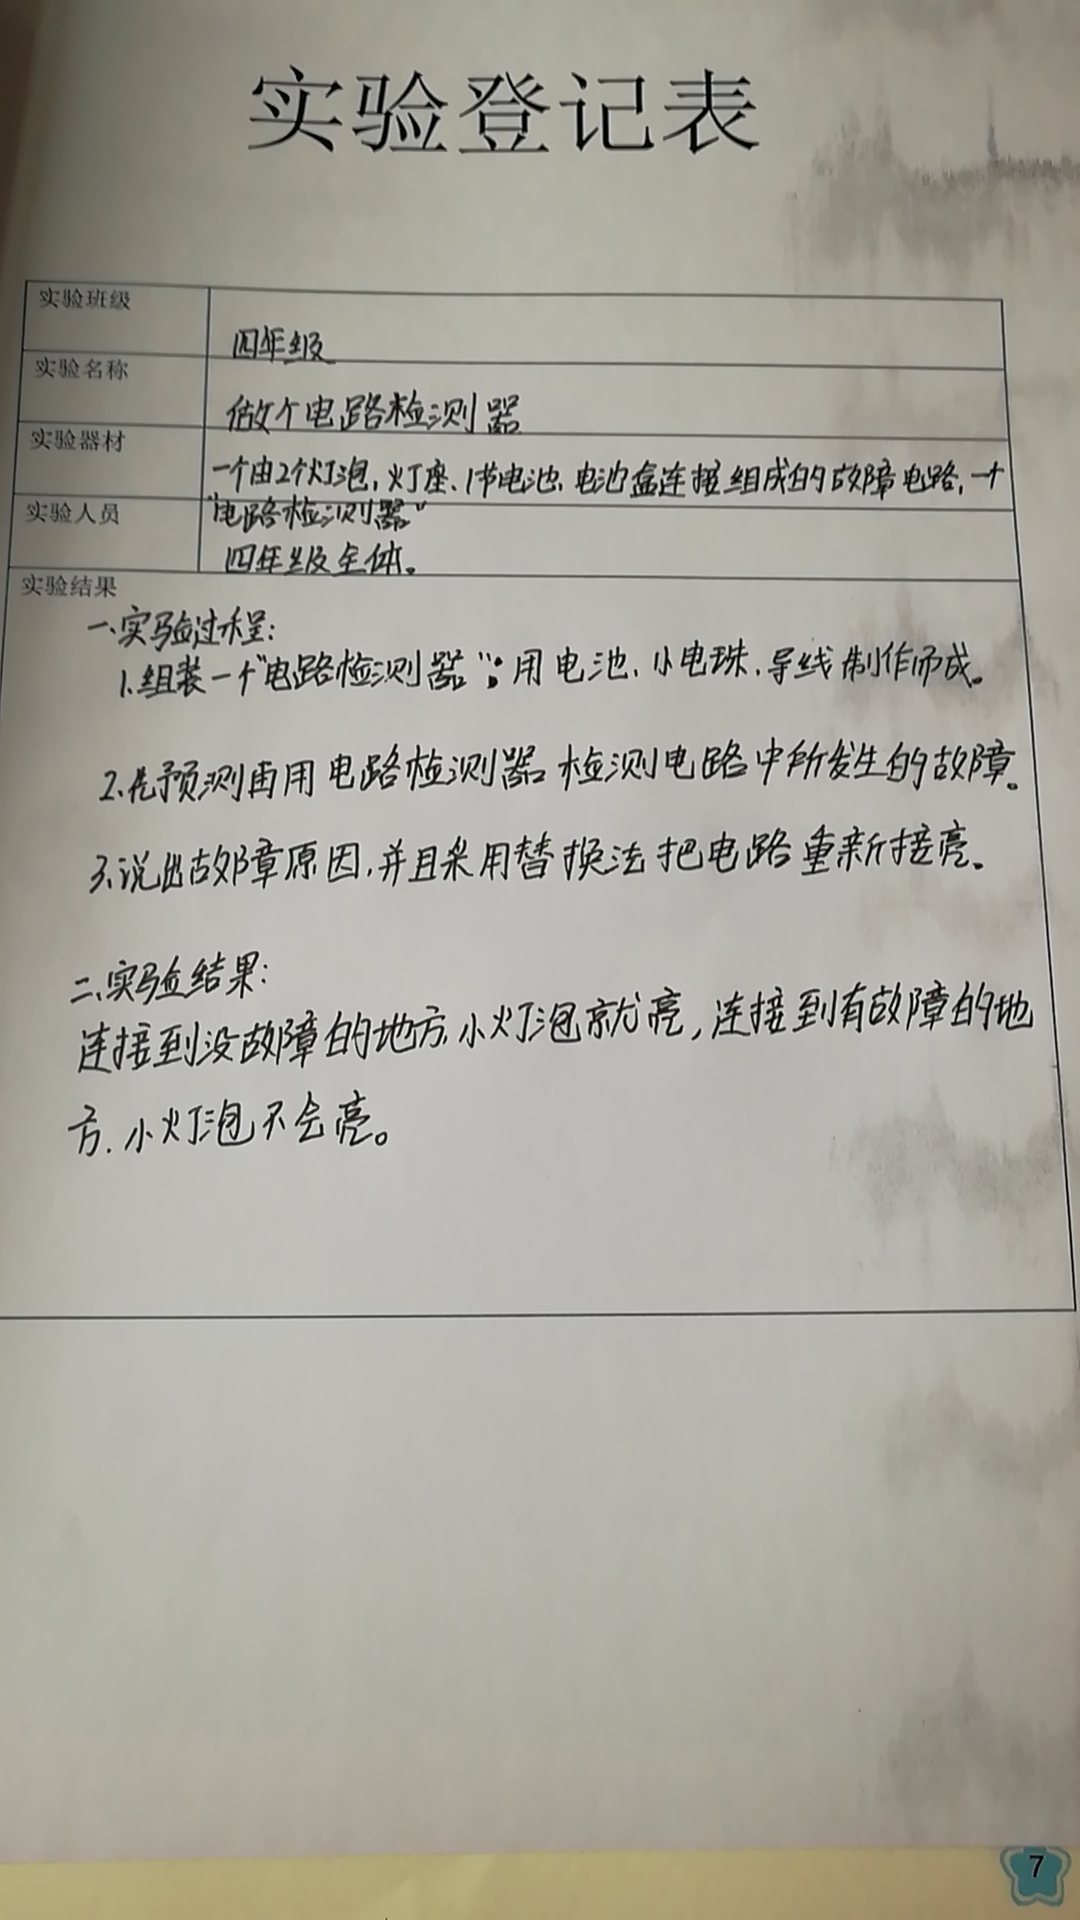 实验登记表
实验班级
四年级
实验名称
做个电路检测器
实验器材
一个由2个灯泡,灯座、1节电池、电池盒连接组成的故障电路,一个
"电路检测器"
实验人员
四年级全体。
实验结果
一、实验过程:
1.组装一个"电路检测器":用电池、小电珠、导线制作而成。
2.先预测再用电路检测器检测电路中所发生的故障。
3.说出故障原因,并且采用替换法把电路重新接亮。
二、实验结果:
连接到没故障的地方,小灯泡就亮,连接到有故障的地
方.小灯泡不会亮。
7